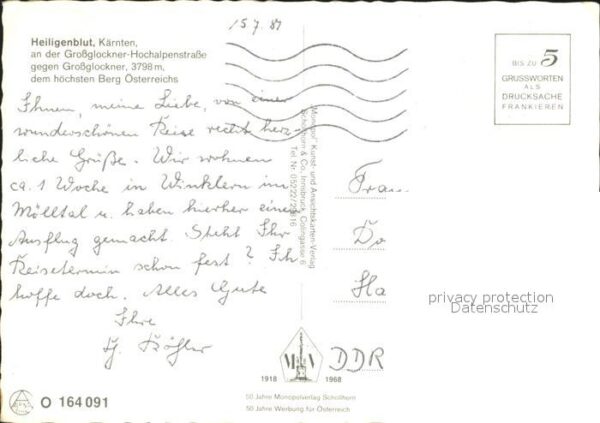 15.7.87
Heiligenblut, Kärnten,
an der Großglockner-Hochalpenstraße
gegen Großglockner, 3798 m,
dem höchsten Berg Österreichs
BIS ZU 5
GRUSSWORTEN
ALS
DRUCKSACHE
FRANKIEREN
Ihnen, meine Liebe, von einer
wunderschönen Reise recht herz-
liche Grüße. Wir wohnen
ca. 1 Woche in Winklern im
Mölltal u. haben hierher einen
Ausflug gemacht. Steht Ihr
Reisetermin schon fest? Ich
hoffe doch. Alles Gute
Ihre
"Monopol" Kunst- und Ansichtskarten-Verlag
Schöllhorn & Co., Innsbruck, Colingasse 6
Tel. Nr. 05222/
Frau
Do
Ha
DDR
privacy protection
Datenschutz
M V
1918 1968
50 Jahre Monopolverlag Schöllhorn
50 Jahre Werbung für Österreich
O 164 091